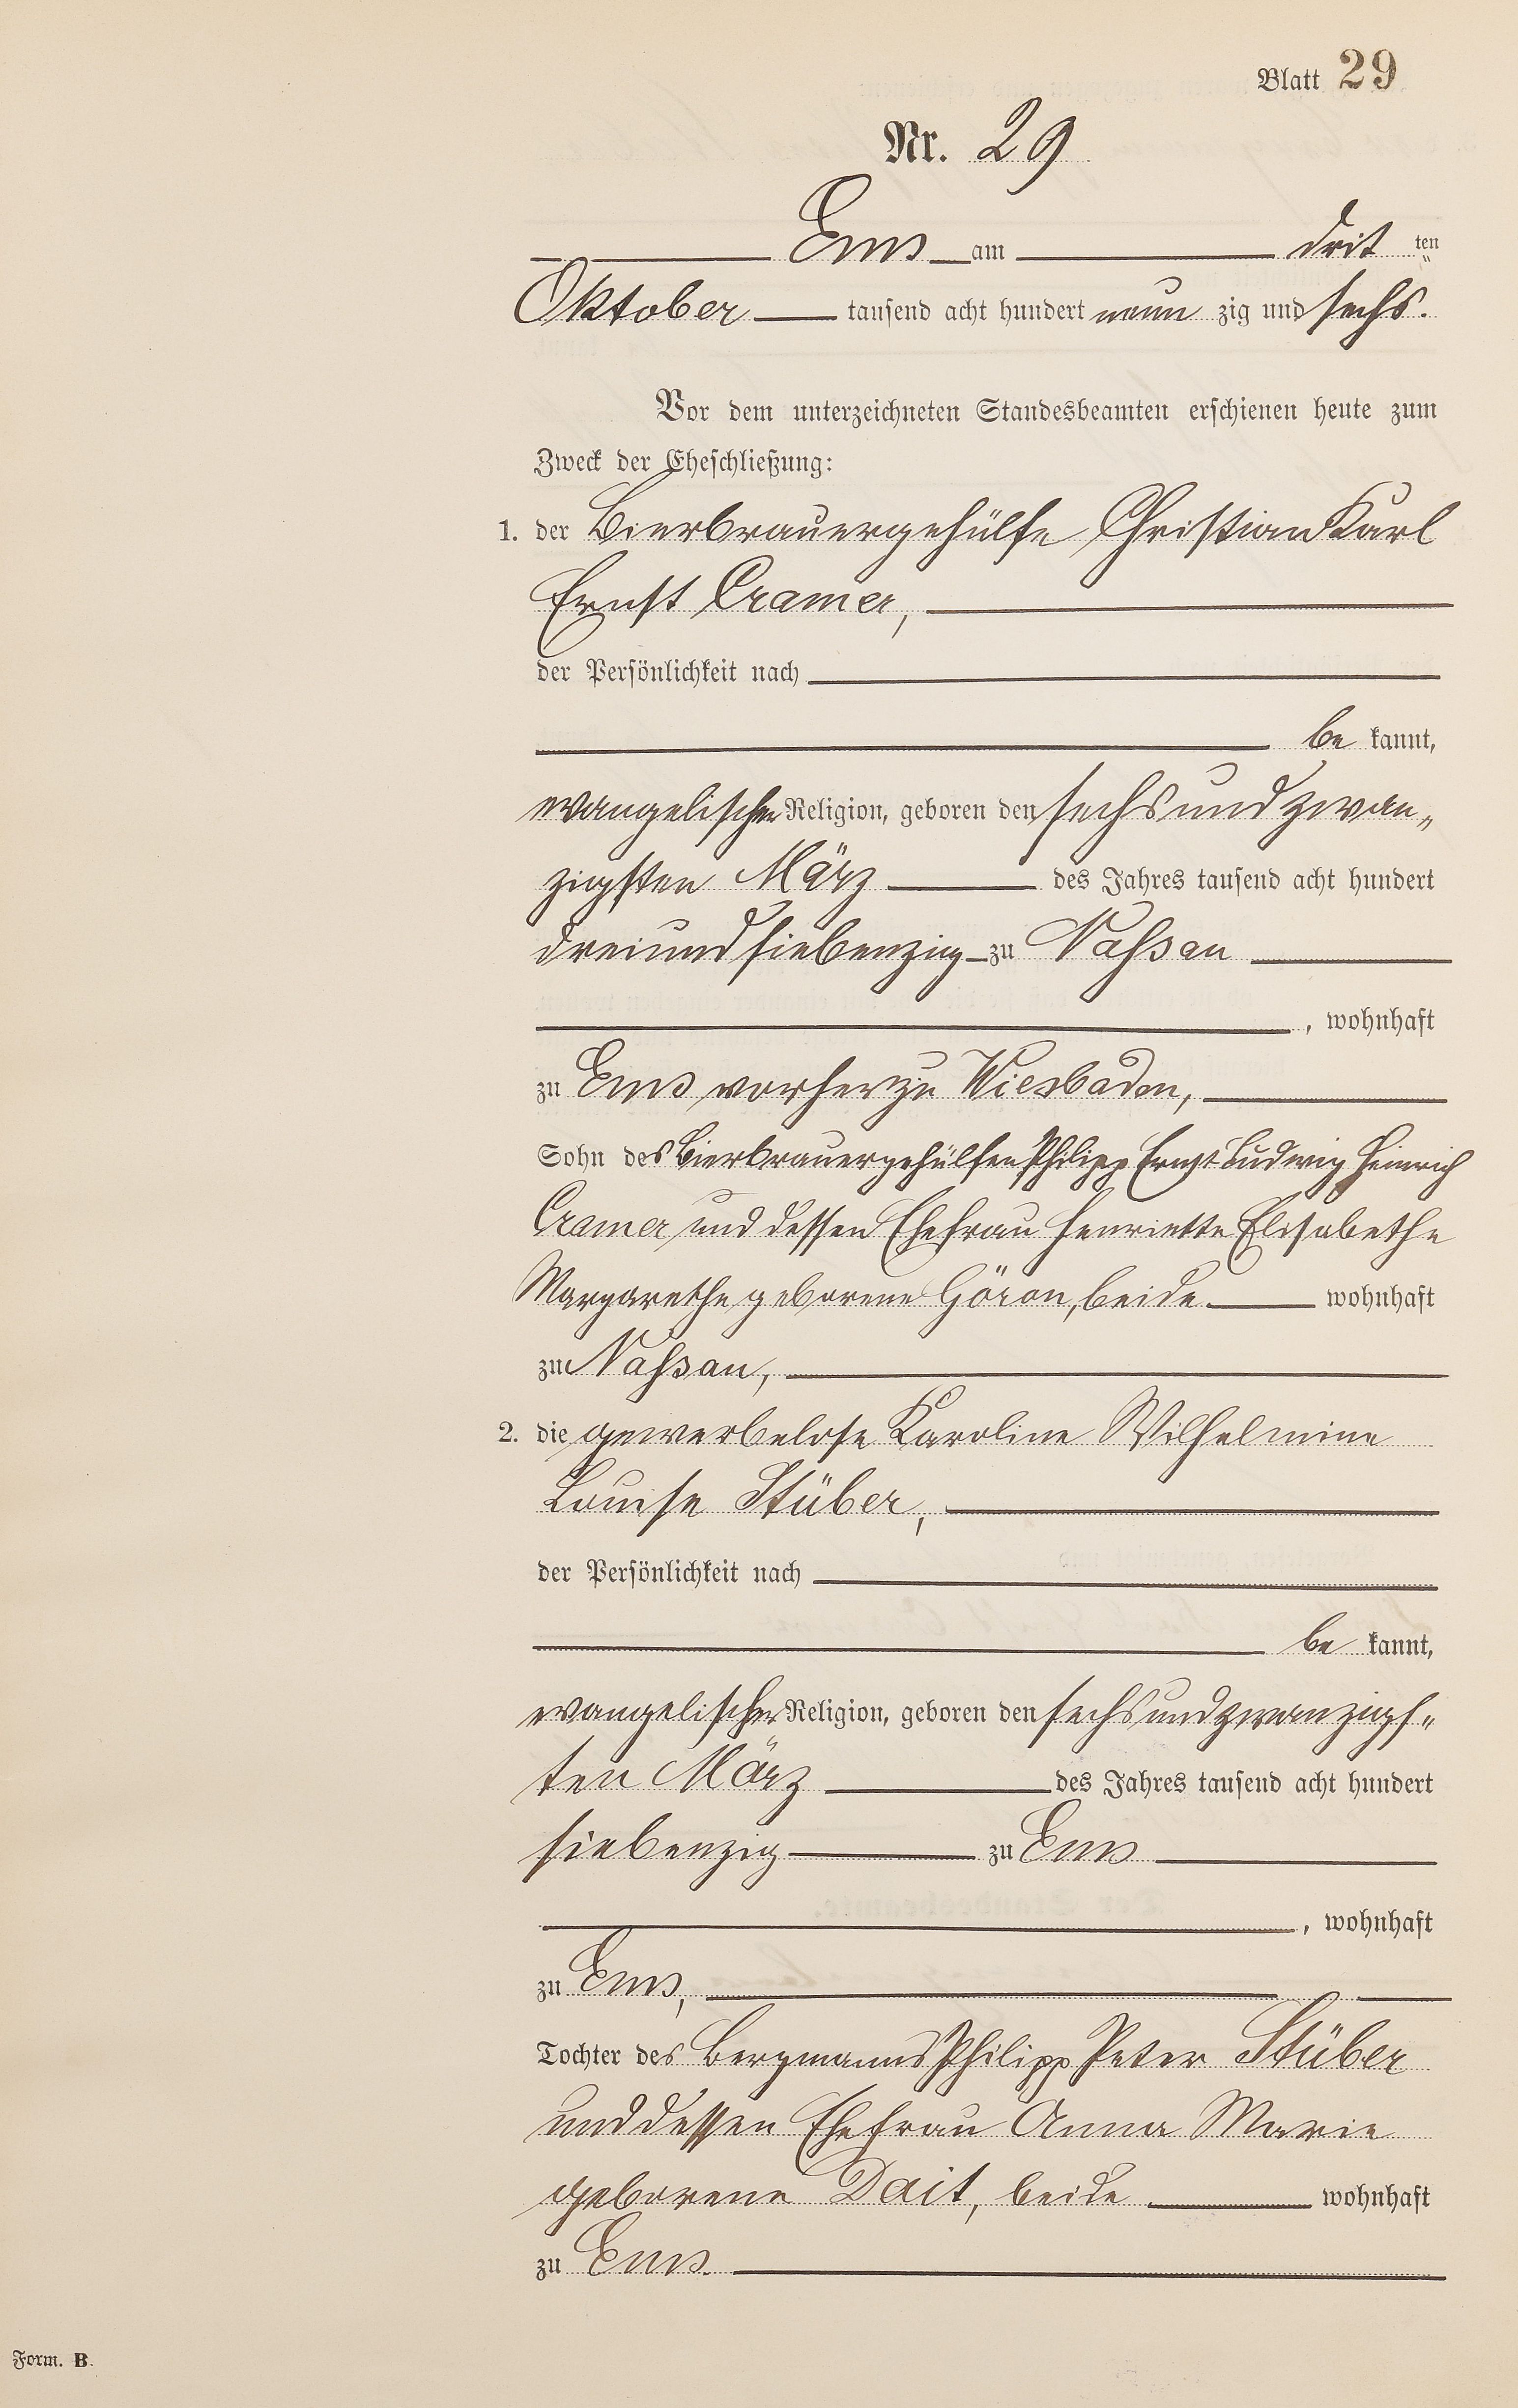 Blatt 29
Nr. 29
Ems am drit ten
Oktober tausend acht hundert neun zig und sechs.
Vor dem unterzeichneten Standesbeamten erschienen heute zum
Zweck der Eheschließung:
1. der Bierbrauergehülfe Christian Karl
Ernst Cramer,
der Persönlichkeit nach
be kannt,
evangelischer Religion, geboren den sechsundzwan„
zigsten März des Jahres tausend acht hundert
dreiundsiebenzig zu Nassau
, wohnhaft
zu Ems vorher zu Wiesbaden,
Sohn des Bierbrauergehülfen Philipp Ernst Ludwig Heinrich
Cramer und dessen Ehefrau Henriette Elisabethe
Margarethe geborene Göron, beide wohnhaft
zu Nassau,
2. die gewerbelose Karoline Wilhelmine
Louise Stüber,
der Persönlichkeit nach
be kannt,
evangelischer Religion, geboren den sechsundzwanzigs„
ten März des Jahres tausend acht hundert
siebenzig zu Ems
, wohnhaft
zu Ems,
Tochter des Bergmanns Philipp Peter Stüber
und dessen Ehefrau Anna Marie
geborene Dait, beide wohnhaft
zu Ems.
Form. B.